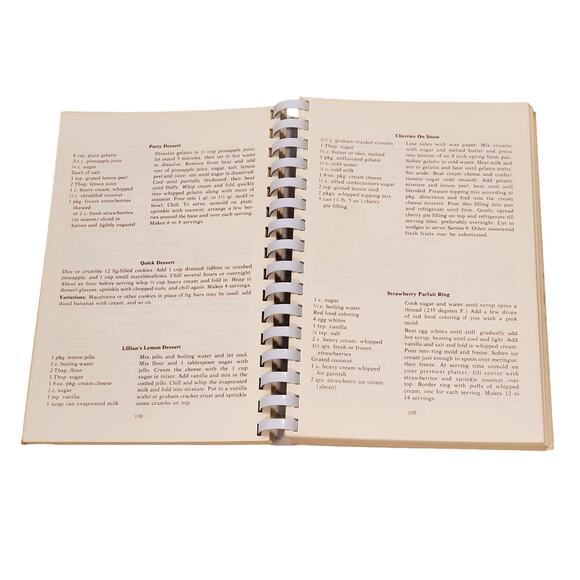 Party Dessert
8 tsp. plain gelatin
2¼ c. pineapple juice
¼ c. sugar
Dash of salt
1 tsp. grated lemon peel
2 Tbsp. lemon juice
1 c. heavy cream, whipped
½ c. shredded coconut
1 pkg. frozen strawberries
thawed
or 2 c. fresh strawberries
(in season) sliced in
halves and lightly sugared
Dissolve gelatin in ½ cup pineapple juice;
let stand 5 minutes, then set in hot water
to dissolve. Remove from heat and add
rest of pineapple juice, sugar, salt, lemon
peel and juice; stir until sugar is dissolved.
Cool until partially thickened; then beat
until fluffy. Whip cream and fold quickly
into whipped gelatin along with most of
coconut. Pour into 1 qt. or 1½ qt. mold or
bowl. Chill. To serve, unmold on plate,
sprinkle with coconut; arrange a few ber-
ries around the base and over each serving.
Makes 6 to 8 servings.
Quick Dessert
Dice or crumble 12 fig-filled cookies. Add 1 cup drained tidbits or crushed
pineapple, and 1 cup small marshmallows. Chill several hours or overnight.
About an hour before serving whip ½ cup heavy cream and fold in. Heap in
dessert glasses, sprinkle with chopped nuts and chill again. Makes 4 servings.
Variations: Macaroons or other cookies in place of fig bars may be used; add
diced bananas with cream, and so on.
Lillian's Lemon Dessert
1 pkg. lemon jello
1 c. boiling water
2 Tbsp. flour
1 Tbsp. sugar
1 8-oz. pkg. cream cheese
1 c. sugar
1 tsp. vanilla
1 large can evaporated milk
Mix jello and boiling water and let cool.
Mix flour and 1 tablespoon sugar with
jello. Cream the cheese with the 1 cup
sugar in mixer. Add vanilla and mix in the
cooled jello. Chill and whip the evaporated
milk and fold into mixture. Put in a vanilla
wafer or graham cracker crust and sprinkle
some crumbs on top.
108
Cherries On Snow
1½ c. graham cracker crumbs
1 Tbsp. sugar
½ c. butter or oleo, melted
1 pkg. unflavored gelatin
¼ c. cold water
½ c. cold milk
1 8-oz. pkg. cream cheese
½ c. sifted confectioners sugar
2 tsp. grated lemon rind
1 pkg. whipped topping mix
1 can (1 lb. 5 oz.) cherry
pie filling
Line sides with wax paper. Mix crumbs
with sugar and melted butter and press
into bottom of an 8 inch spring form pan.
Soften gelatin in cold water. Heat milk and
stir in gelatin and heat until gelatin melts.
Set aside. Beat cream cheese and confec-
tioners sugar until smooth. Add gelatin
mixture and lemon peel; beat until well
blended. Prepare topping mix according to
pkg. directions and fold into the cream
cheese mixture. Pour this filling into pan
and refrigerate until firm. Gently spread
cherry pie filling on top and refrigerate till
serving time, preferably overnight. Cut in
wedges to serve. Serves 9. Other sweetened
fresh fruits may be substituted.
Strawberry Parfait Ring
1 c. sugar
½ c. boiling water
Red food coloring
4 egg whites
1 tsp. vanilla
¼ tsp. salt
2 c. heavy cream, whipped
1½ qts. fresh or frozen
strawberries
Grated coconut
1 c. heavy cream whipped
for garnish
2 qts. strawberry ice cream
(about)
Cook sugar and water until syrup spins a
thread (235 degrees F.) Add a few drops
of red food coloring if you wish a pink
mold.
Beat egg whites until stiff, gradually add
hot syrup, beating until cool and light. Add
vanilla and salt and fold in whipped cream.
Pour into ring mold and freeze. Soften ice
cream just enough to spoon over meringue,
then freeze. At serving time unmold on
your prettiest platter, fill center with
strawberries and sprinkle coconut over
top. Border ring with puffs of whipped
cream, one for each serving. Makes 12 to
14 servings.
109